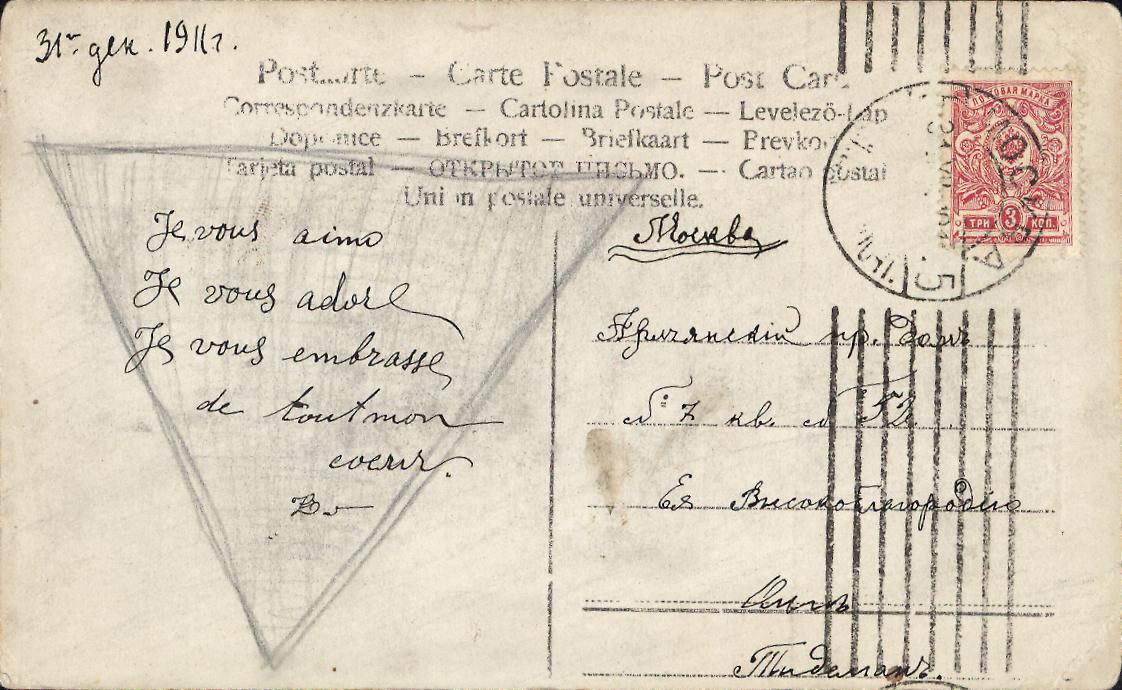 31го дек. 1911г.
Postkarte – Carte Postale – Post Card
Correspondenzkarte — Cartolina Postale — Levelező-Lap
Dopisnice — Brefkort — Briefkaart — Brevkort
Tarjeta postal — ОТКРЫТОЕ ПИСЬМО. — Cartao postal
Union postale universelle.
ПОЧТОВАЯ МАРКА
3
ТРИ КОП.
МОСКВА
5
Je vous aime
Je vous adore
Je vous embrasse
de tout mon
coeur.
Москва
пр. Домъ
№ 7 кв. № 52.
Ея Высокоблагородiю
Тидеманъ.